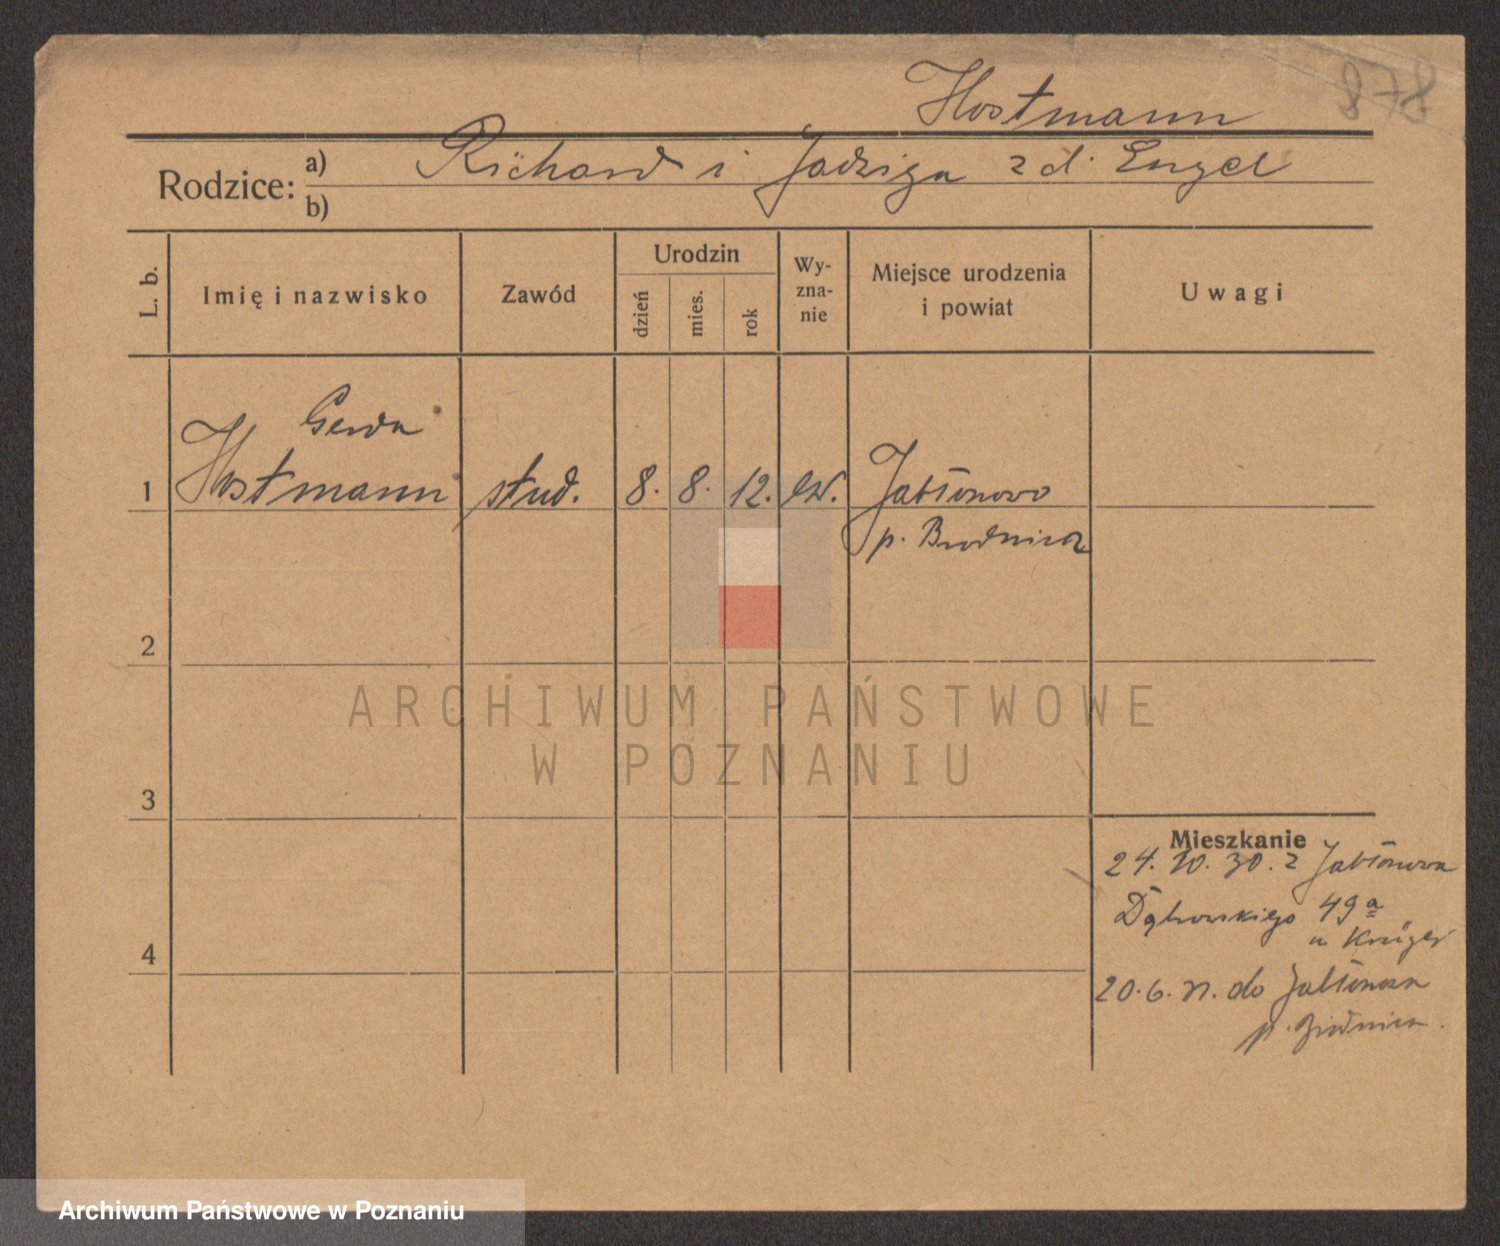 878
Hostmann
Rodzice: a) Richard i Jadwiga z d. Engel
b)
L. b.
Imię i nazwisko
Zawód
Urodzin
dzień
mies.
rok
Wy-
zna-
nie
Miejsce urodzenia
i powiat
Uwagi
Gerda
1 Hostmann stud. 8. 8. 12. ew. Jabłonowo
p. Brodnica
2
3
4
Mieszkanie
24. 10. 30. z Jabłonowa
Dąbrowskiego 49a
u Krüger
20. 6. 31. do Jabłonowa
p. Brodnica.
ARCHIWUM PAŃSTWOWE
W POZNANIU
Archiwum Państwowe w Poznaniu